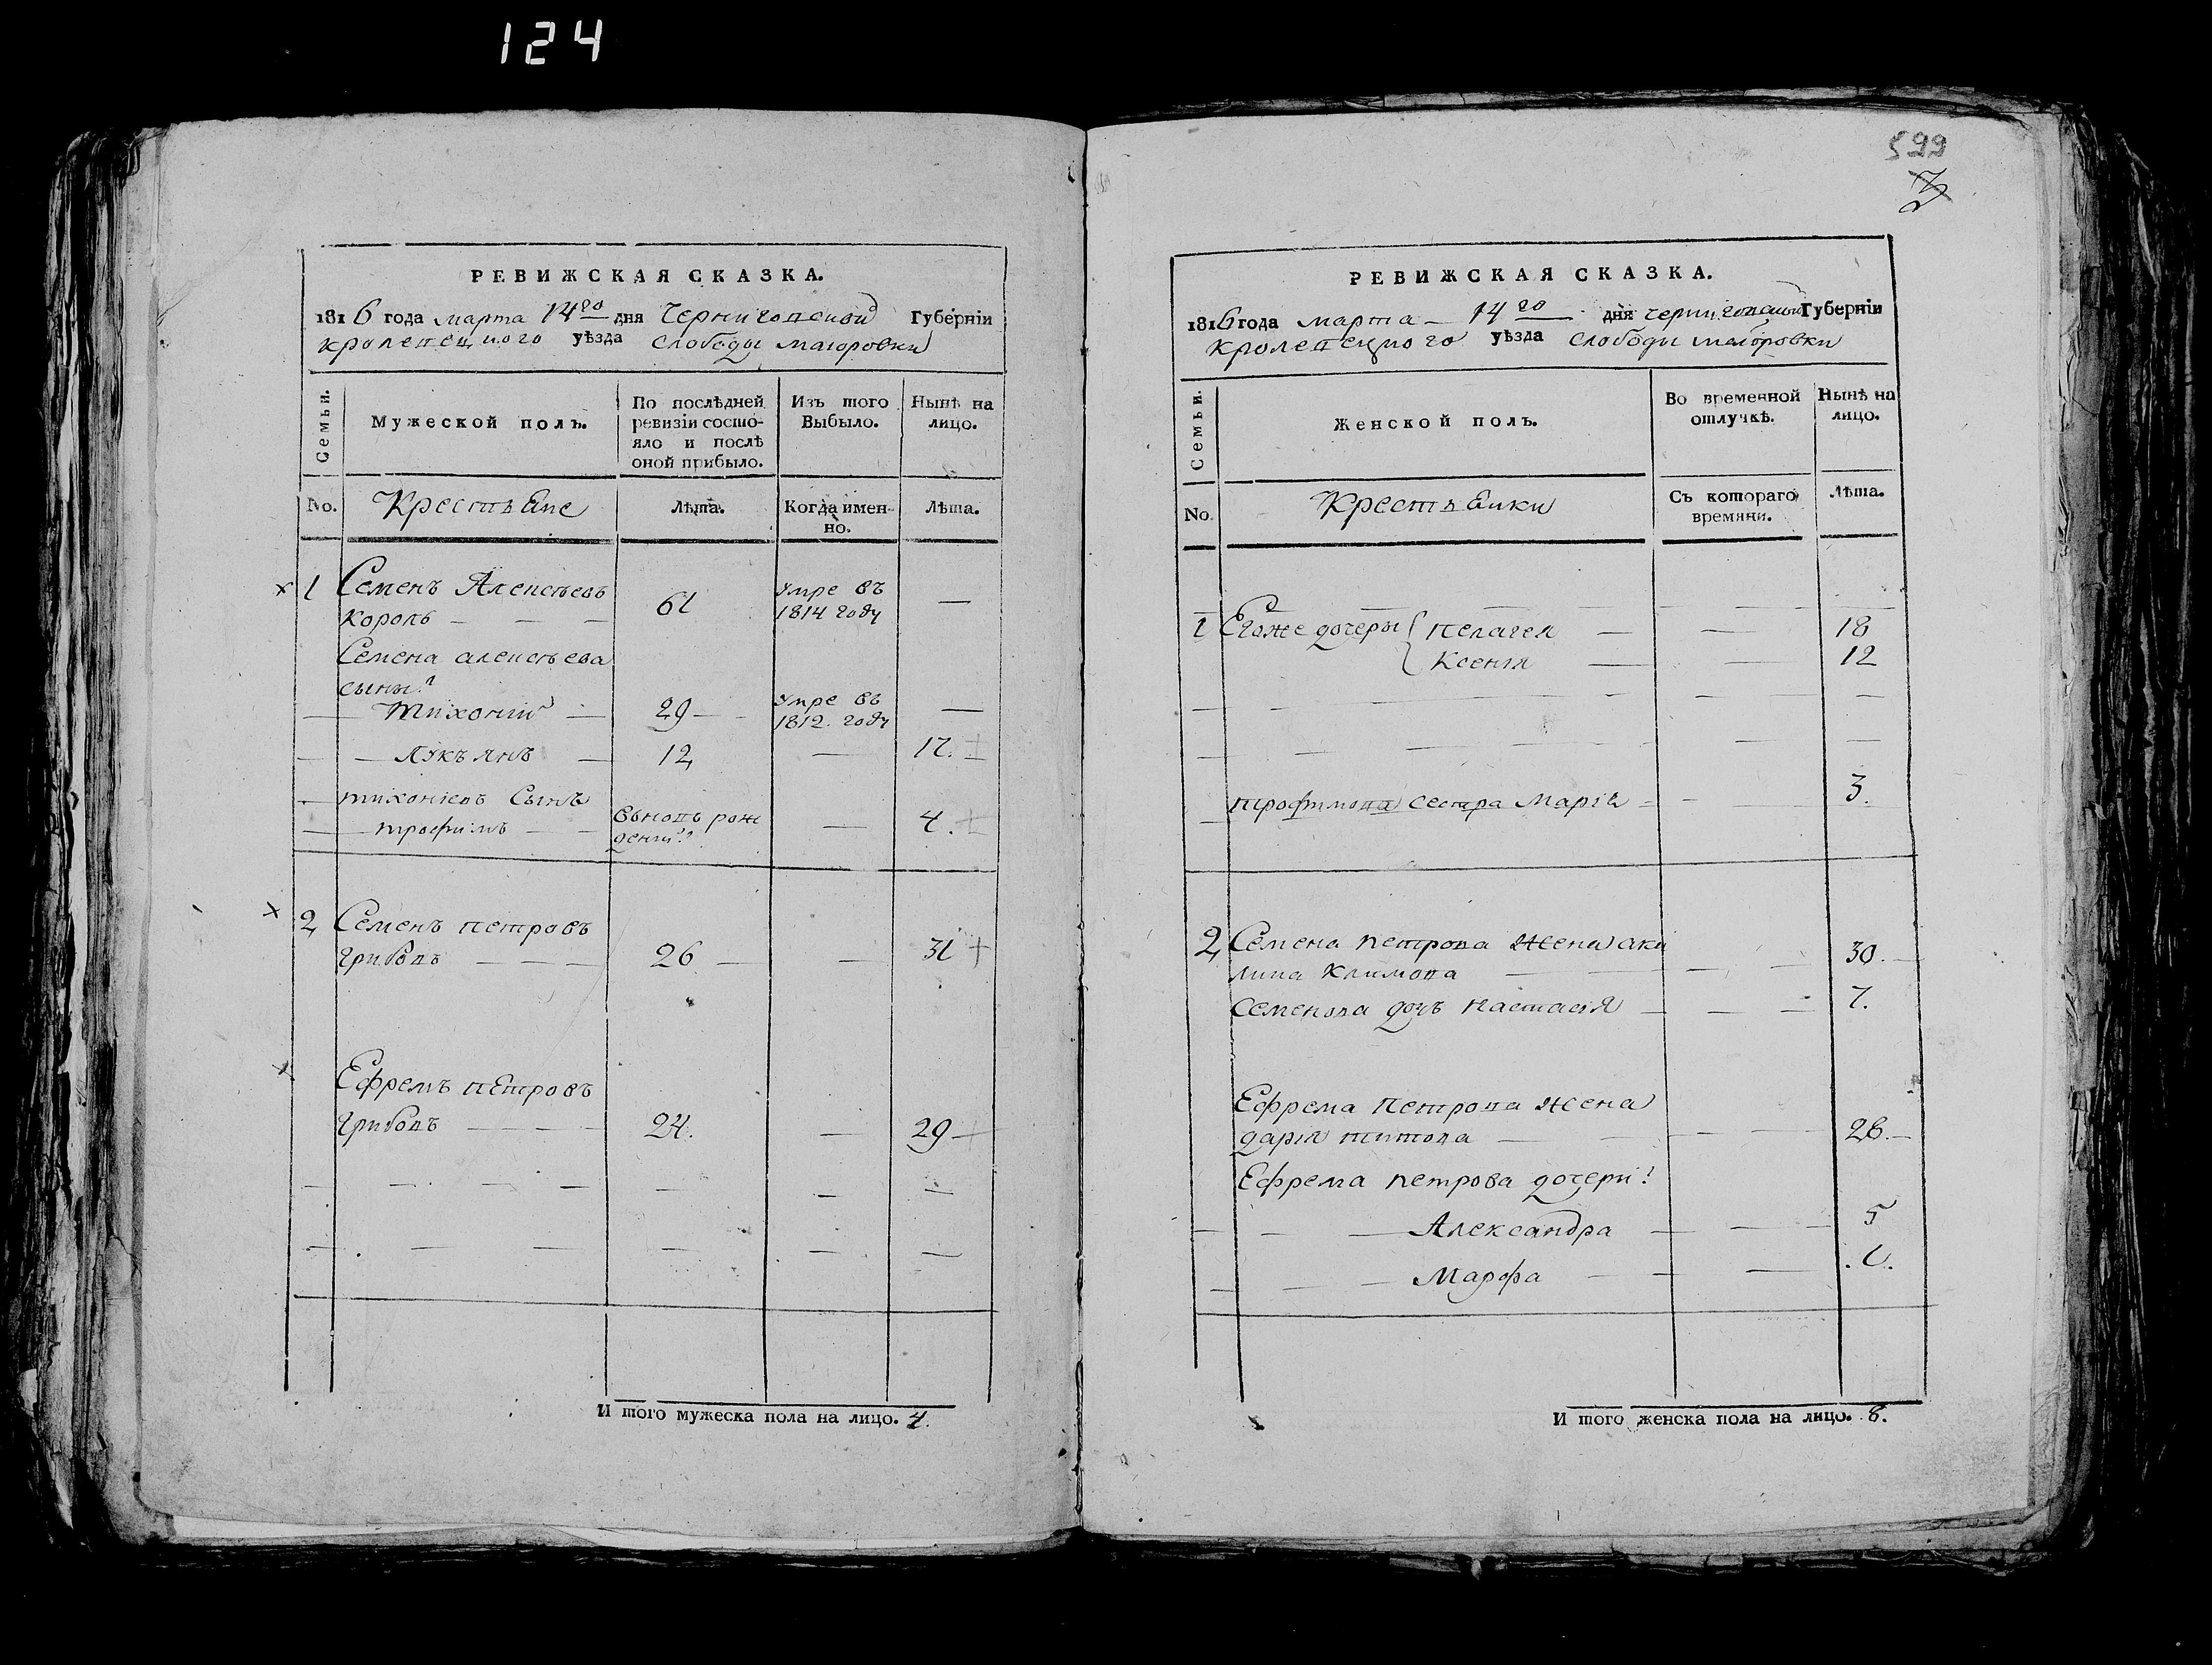 124
РЕВИЖСКАЯ СКАЗКА.
1816 года марта 14го дня Черниговской Губерніи
кролевецкого уѣзда слободы маіоровки
Семьи.
Мужеской полъ.
По послѣдней ревизіи состояло и послѣ оной прибыло.
Изъ того Выбыло.
Нынѣ на лицо.
No. Крестьяне Лѣта. Когда именно. Лѣта.
1 Семенъ Алексѣевъ 61 Умре въ —
король — — — 1814 году
Семена алексѣева
сыны:
— Тихоній — 29 — Умре въ —
1812. году
— — Лукьянъ — 12 — 17.
— тихоніевъ Сынъ вьновь рож
— — трофимъ — — деній — 4.
2 Семенъ петровъ
грибовъ — — — 26 — — 31
Ефремъ пЕтровъ
грибовъ — — — 24. — 29
И того мужеска пола на лицо. 4.
599
7
РЕВИЖСКАЯ СКАЗКА.
1816 года марта — 14го дня черниговской Губерніи
кролевецкого уѣзда слободы маіоровки
Семьи.
Женской полъ.
Во временной отлучкѣ.
Нынѣ на лицо.
No. Крестьянки Съ котораго времяни. Лѣта.
1 Егоже дочеры { пелагея — — 18
{ Ксенія — — 12
трофимова сестра Марія — — 3.
2 Семена петрова Жена аки
лина Климова — — — 30.
Семенова дочь настасія — — — 7.
Ефрема Петрова Жена
дарія титова — — — 28.
Ефрема петрова дочери:
— — — Александра — — — 5
— — — Марфа — — — 1.
И того женска пола на лицо. 8.